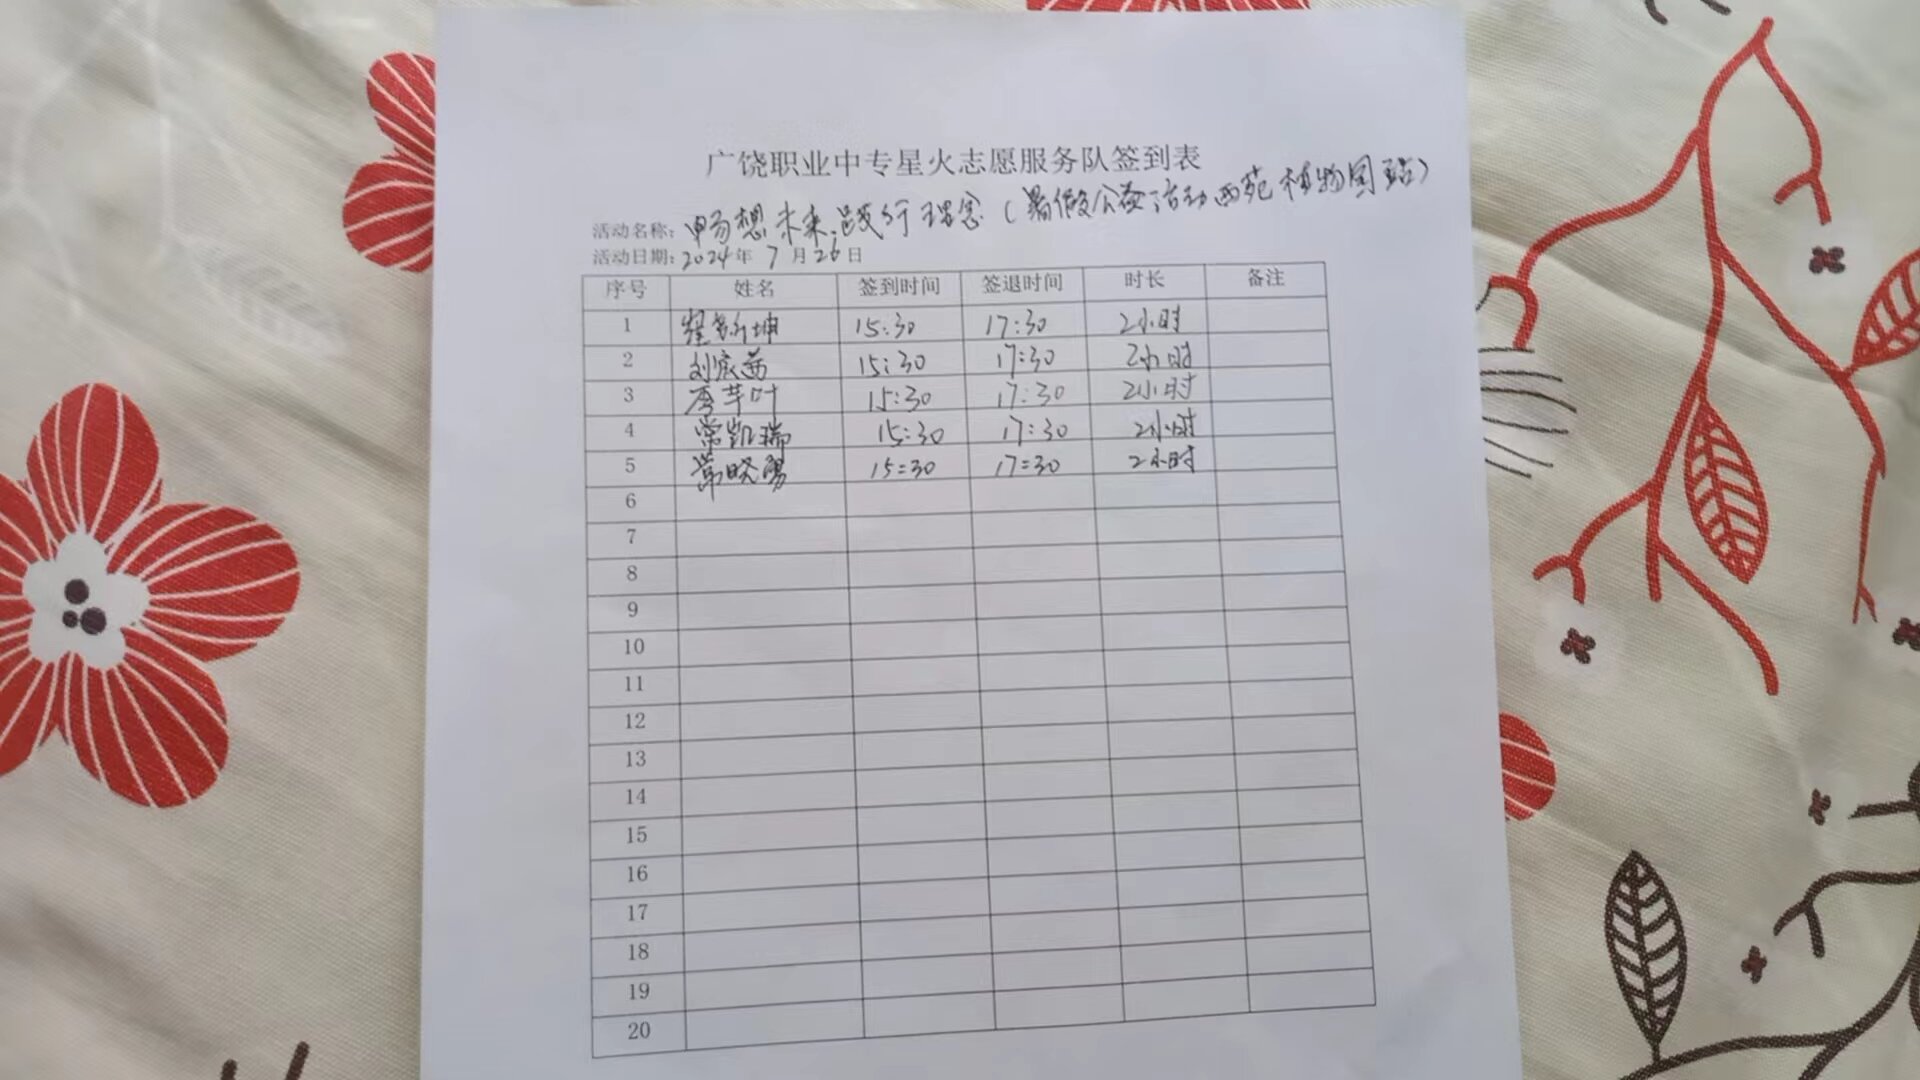 广饶职业中专星火志愿服务队签到表
活动名称: 畅想未来.践行理念(暑假公益活动西苑植物园站)
活动日期: 2024年 7月26日
序号 姓名 签到时间 签退时间 时长 备注
1 15:30 17:30 2小时
2 刘宸茜 15:30 17:30 2小时
3 芊叶 15:30 17:30 2小时
4 常凯瑞 15:30 17:30 2小时
5 常晓勇 15:30 17:30 2小时
6
7
8
9
10
11
12
13
14
15
16
17
18
19
20